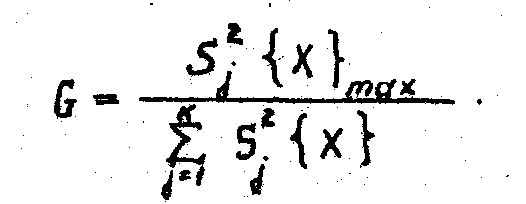 G = \frac{S_j^2 \{X\}_{max}}{\sum_{j=1}^{K} S_j^2 \{X\}} .